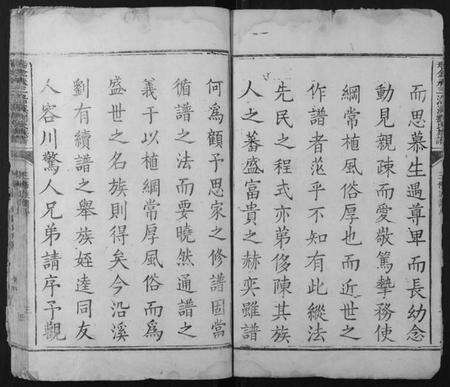 而思慕生遇尊卑而長幼念
動見親疎而愛敬篤摯務使
綱常植風俗厚也而近世之
作譜者茫乎不知有此縱法
先民之程式亦第侈陳其族
人之蕃盛富貴之赫奕雖譜
何為顧予思家之修譜固當
循譜之法而要曉然通譜之
義于以植綱常厚風俗而為
盛世之名族則得矣今沿溪
劉有續譜之舉族姪逵同友
人容川驚人兄弟請序予觀